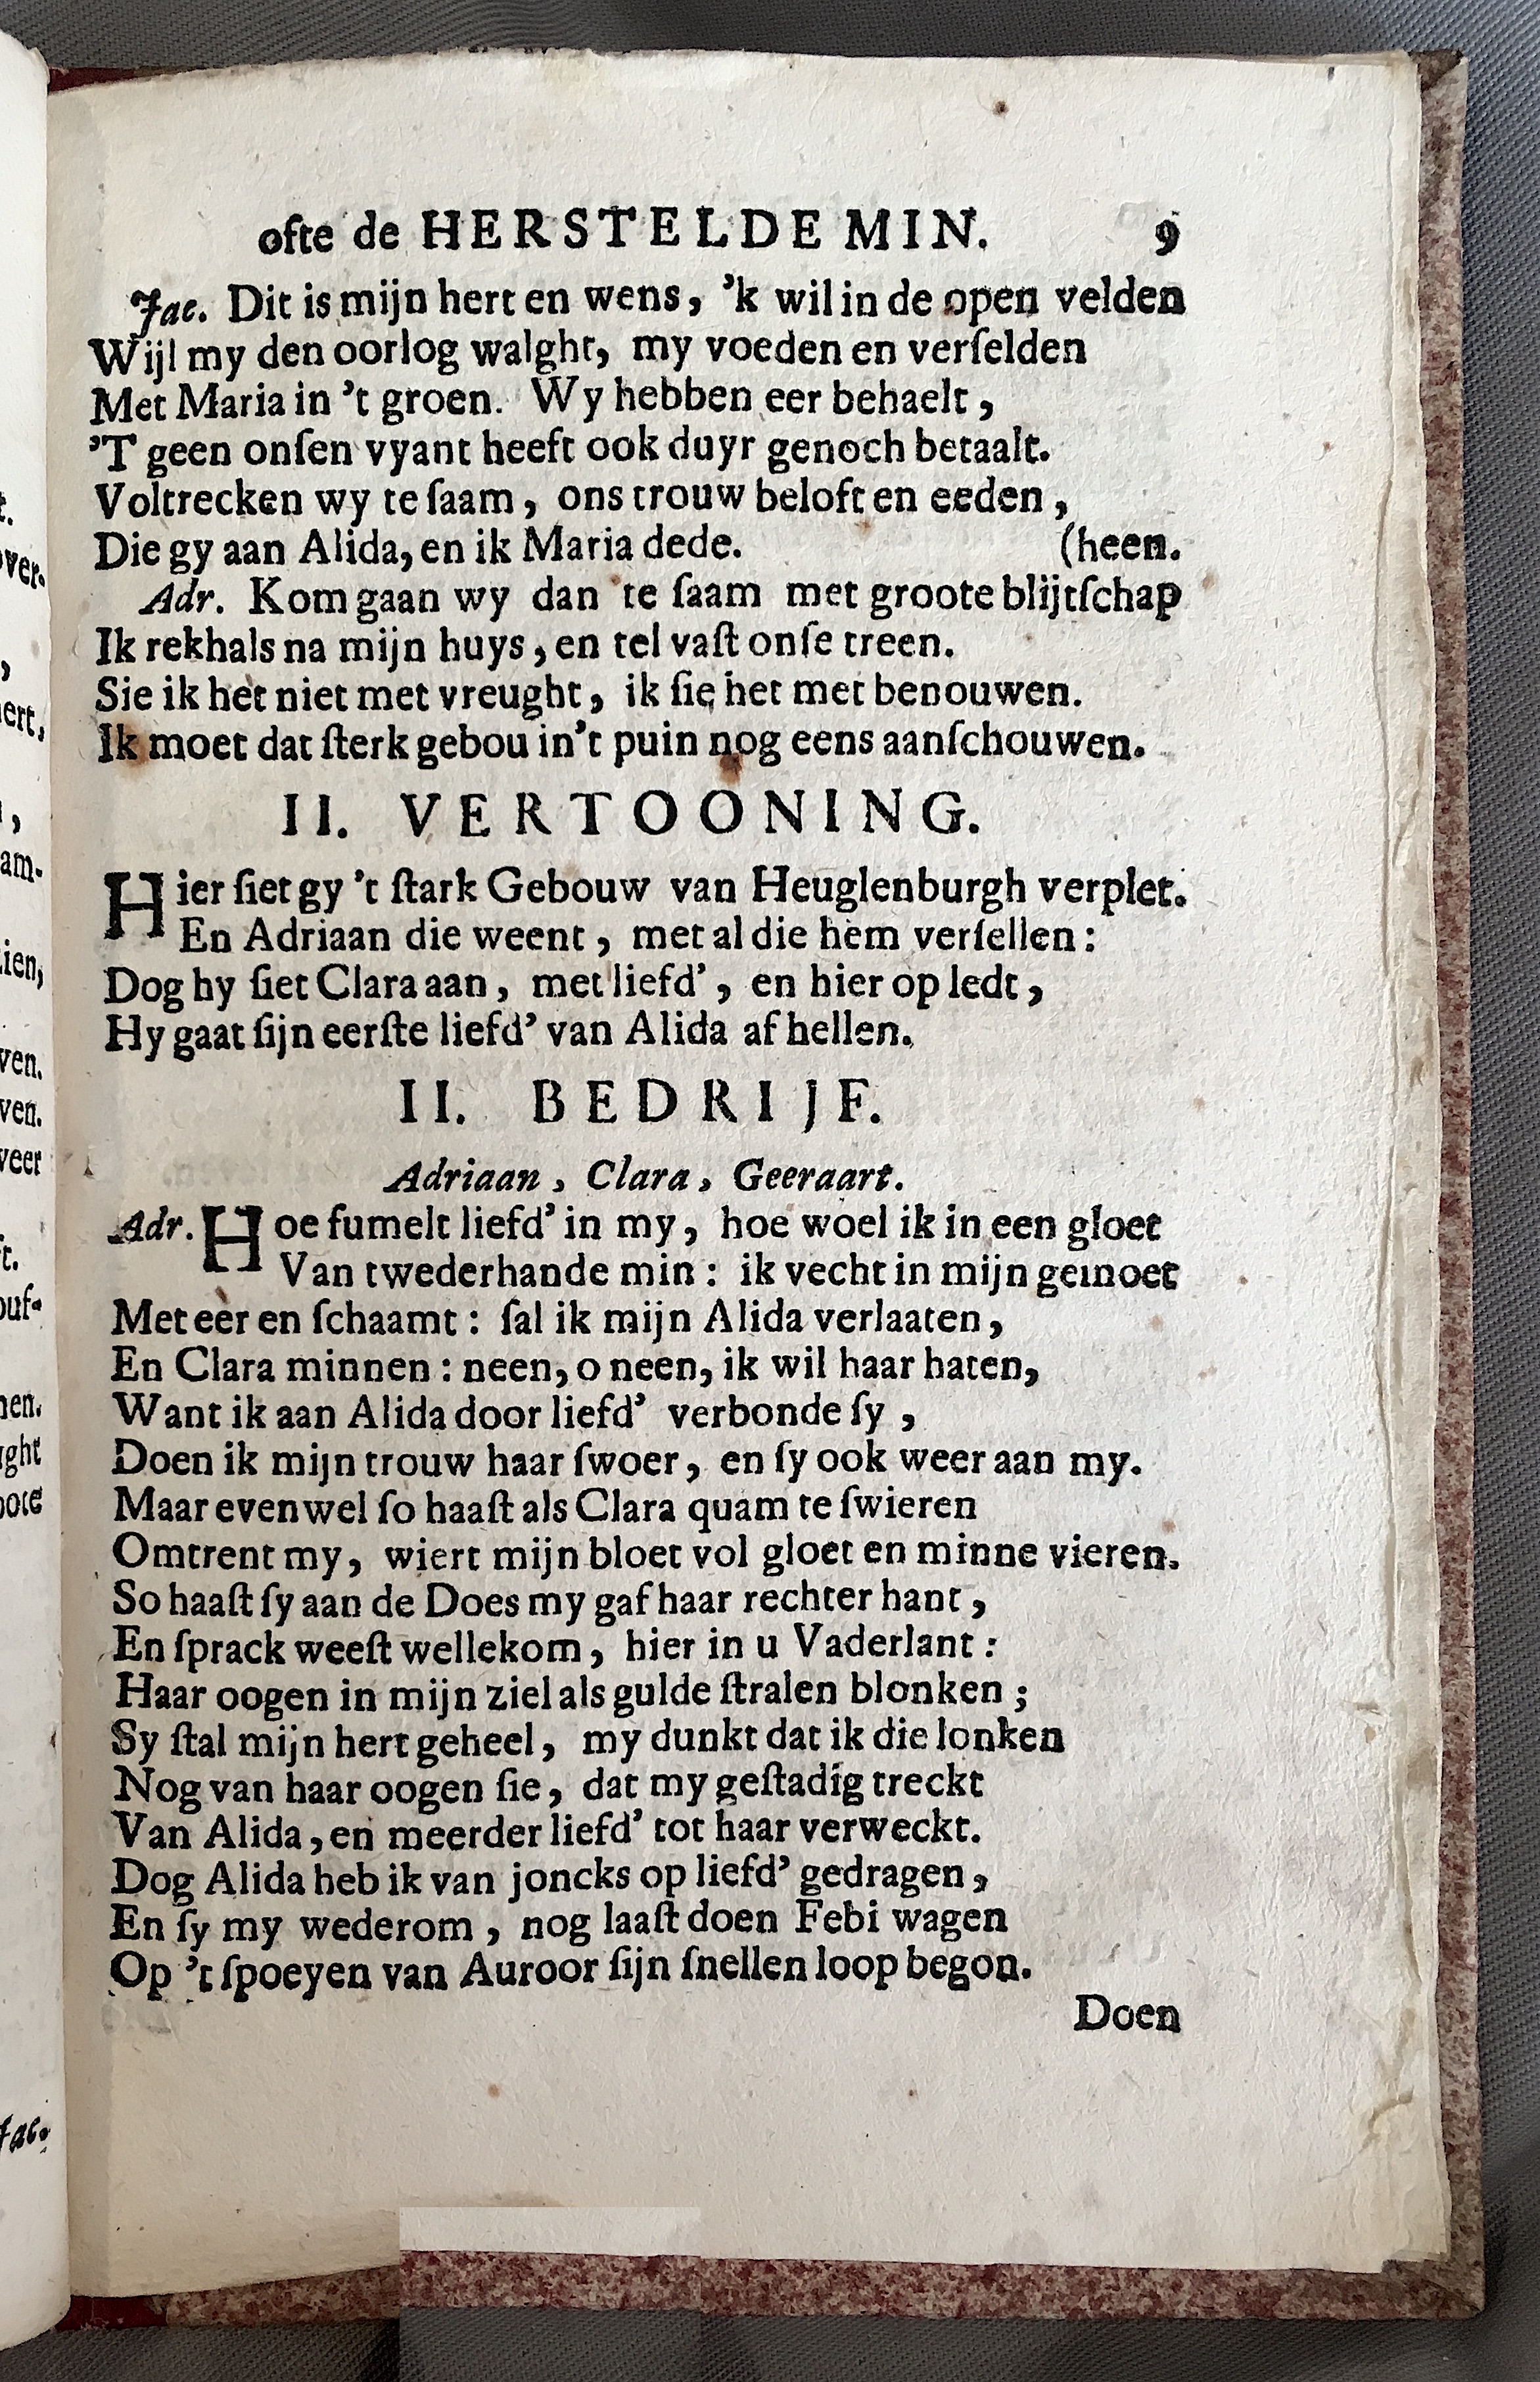 ofte de HERSTELDE MIN. 9
Jac. Dit is mijn hert en wens, 'k wil in de open velden
Wijl my den oorlog walght, my voeden en verſelden
Met Maria in 't groen. Wy hebben eer behaelt,
'T geen onſen vyant heeft ook duyr genoch betaalt.
Voltrecken wy te ſaam, ons trouw beloft en eeden,
Die gy aan Alida, en ik Maria dede. (heen.
Adr. Kom gaan wy dan te ſaam met groote blijtſchap
Ik rekhals na mijn huys, en tel vaſt onſe treen.
Sie ik het niet met vreught, ik ſie het met benouwen.
Ik moet dat ſterk gebou in't puin nog eens aanſchouwen.
II. VERTOONING.
Hier ſiet gy 't ſtark Gebouw van Heuglenburgh verplet.
En Adriaan die weent, met al die hem verſellen:
Dog hy ſiet Clara aan, met liefd', en hier op ledt,
Hy gaat ſijn eerſte liefd' van Alida af hellen.
II. BEDRIJF.
Adriaan, Clara, Geeraart.
Adr. Hoe fumelt liefd' in my, hoe woel ik in een gloet
Van twederhande min: ik vecht in mijn gemoet
Met eer en ſchaamt: ſal ik mijn Alida verlaaten,
En Clara minnen: neen, o neen, ik wil haar haten,
Want ik aan Alida door liefd' verbonde ſy,
Doen ik mijn trouw haar ſwoer, en ſy ook weer aan my.
Maar evenwel ſo haaſt als Clara quam te ſwieren
Omtrent my, wiert mijn bloet vol gloet en minne vieren.
So haaſt ſy aan de Does my gaf haar rechter hant,
En ſprack weeſt wellekom, hier in u Vaderlant:
Haar oogen in mijn ziel als gulde ſtralen blonken;
Sy ſtal mijn hert geheel, my dunkt dat ik die lonken
Nog van haar oogen ſie, dat my geſtadig treckt
Van Alida, en meerder liefd' tot haar verweckt.
Dog Alida heb ik van joncks op liefd' gedragen,
En ſy my wederom, nog laaſt doen Febi wagen
Op 't ſpoeyen van Auroor ſijn ſnellen loop begon.
Doen